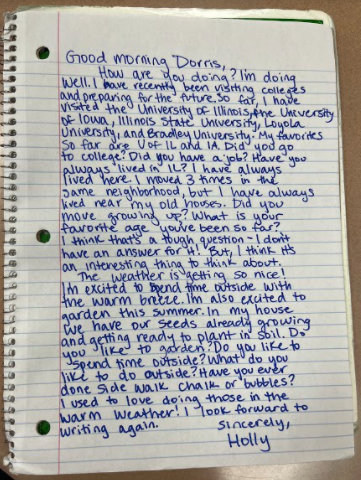 Good morning Dorris,
How are you doing? I'm doing
well. I have recently been visiting colleges
and preparing for the future. So far, I have
visited the University of Illinois, the University
of Iowa, Illinois State University, Loyola
University, and Bradley University. My favorites
so far are U of IL and IA. Did you go
to college? Did you have a job? Have you
always lived in IL? I have always
lived here. I moved 3 times in the
same neighborhood, but I have always
lived near my old houses. Did you
move growing up? What is your
favorite age you've been so far?
I think that's a tough question - I don't
have an answer for it! But, I think it's
an interesting thing to think about.
The weather is getting so nice!
I'm excited to spend time outside with
the warm breeze. I'm also excited to
garden this summer. In my house
we have our seeds already growing
and getting ready to plant in soil. Do
you like to garden? Do you like to
spend time outside? What do you
like to do outside? Have you ever
done side walk chalk or bubbles?
I used to love doing those in the
warm weather! I look forward to
writing again.
Sincerely,
Holly